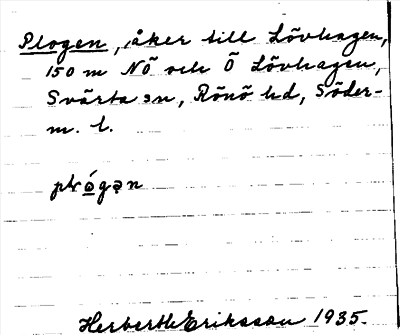 Plogen, åker till Lövhagen,
150 m NÖ och Ö Lövhagen,
Svärta sn, Rönö hd, Söder-
m. l.
plógən
Herbert Eriksson 1935.